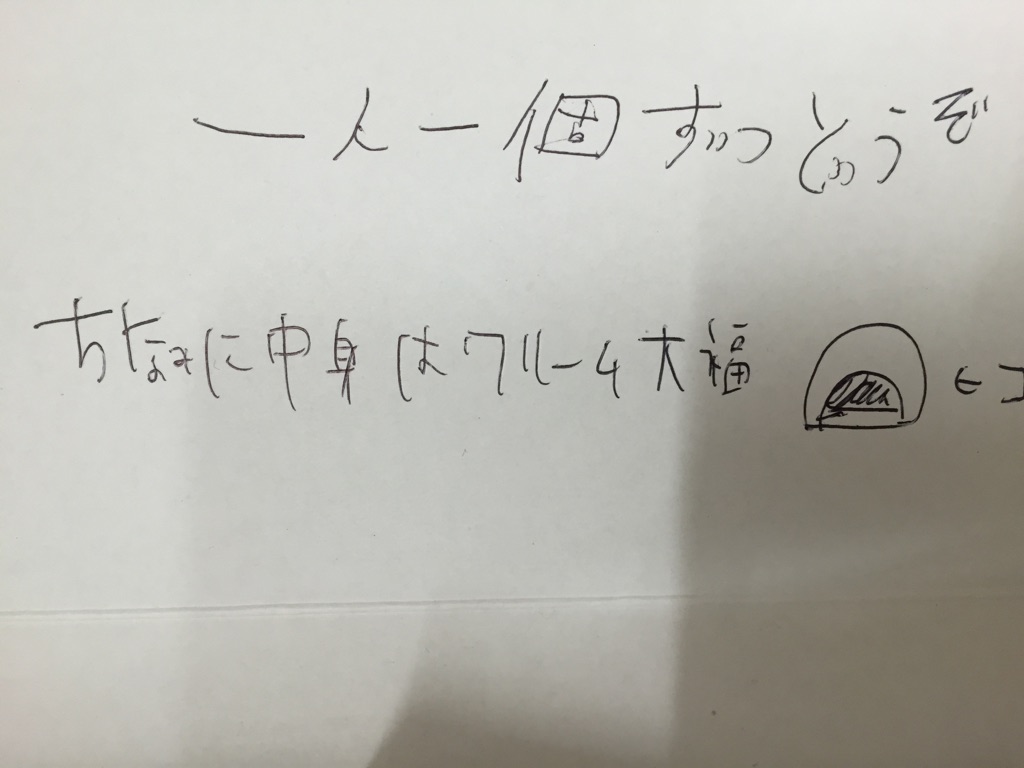 一人一個ずつどうぞ
ちなみに中身はクリーム大福